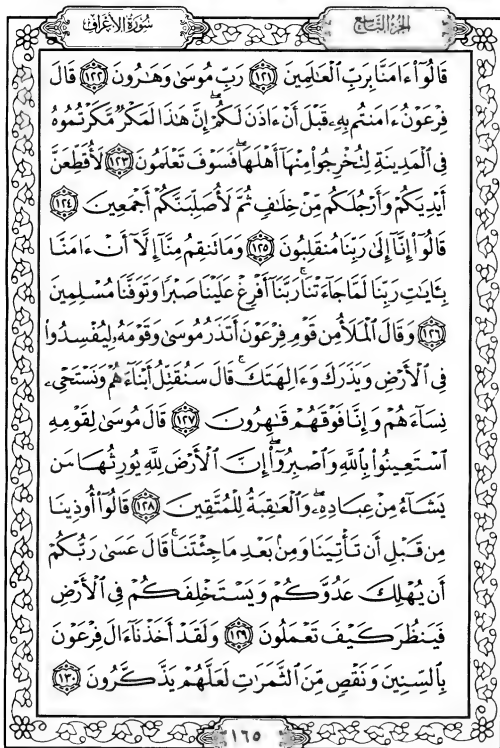 سُورَةُ الأَعْرَافِ
الجُزْءُ التَّاسِعُ
قَالُوٓا۟ ءَامَنَّا بِرَبِّ ٱلْعَٰلَمِينَ ١٢١ رَبِّ مُوسَىٰ وَهَٰرُونَ ١٢٢ قَالَ
فِرْعَوْنُ ءَامَنتُم بِهِۦ قَبْلَ أَنْ ءَاذَنَ لَكُمْ ۖ إِنَّ هَٰذَا لَمَكْرٌ مَّكَرْتُمُوهُ
فِى ٱلْمَدِينَةِ لِتُخْرِجُوا۟ مِنْهَآ أَهْلَهَا ۖ فَسَوْفَ تَعْلَمُونَ ١٢٣ لَأُقَطِّعَنَّ
أَيْدِيَكُمْ وَأَرْجُلَكُم مِّنْ خِلَٰفٍ ثُمَّ لَأُصَلِّبَنَّكُمْ أَجْمَعِينَ ١٢٤
قَالُوٓا۟ إِنَّآ إِلَىٰ رَبِّنَا مُنقَلِبُونَ ١٢٥ وَمَا تَنقِمُ مِنَّآ إِلَّآ أَنْ ءَامَنَّا
بِـَٔايَٰتِ رَبِّنَا لَمَّا جَآءَتْنَا ۚ رَبَّنَآ أَفْرِغْ عَلَيْنَا صَبْرًا وَتَوَفَّنَا مُسْلِمِينَ
١٢٦ وَقَالَ ٱلْمَلَأُ مِن قَوْمِ فِرْعَوْنَ أَتَذَرُ مُوسَىٰ وَقَوْمَهُۥ لِيُفْسِدُوا۟
فِى ٱلْأَرْضِ وَيَذَرَكَ وَءَالِهَتَكَ ۚ قَالَ سَنُقَتِّلُ أَبْنَآءَهُمْ وَنَسْتَحْىِۦ
نِسَآءَهُمْ وَإِنَّا فَوْقَهُمْ قَٰهِرُونَ ١٢٧ قَالَ مُوسَىٰ لِقَوْمِهِ
ٱسْتَعِينُوا۟ بِٱللَّهِ وَٱصْبِرُوٓا۟ ۖ إِنَّ ٱلْأَرْضَ لِلَّهِ يُورِثُهَا مَن
يَشَآءُ مِنْ عِبَادِهِۦ ۖ وَٱلْعَٰقِبَةُ لِلْمُتَّقِينَ ١٢٨ قَالُوٓا۟ أُوذِينَا
مِن قَبْلِ أَن تَأْتِيَنَا وَمِنۢ بَعْدِ مَا جِئْتَنَا ۚ قَالَ عَسَىٰ رَبُّكُمْ
أَن يُهْلِكَ عَدُوَّكُمْ وَيَسْتَخْلِفَكُمْ فِى ٱلْأَرْضِ
فَيَنظُرَ كَيْفَ تَعْمَلُونَ ١٢٩ وَلَقَدْ أَخَذْنَآ ءَالَ فِرْعَوْنَ
بِٱلسِّنِينَ وَنَقْصٍ مِّنَ ٱلثَّمَرَٰتِ لَعَلَّهُمْ يَذَّكَّرُونَ ١٣٠
١٦٥